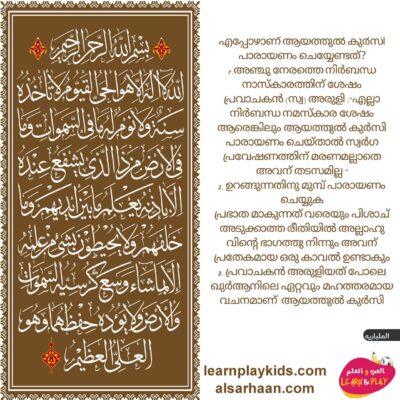 بسم الله الرحمن الرحيم
الله لا إله إلا هو الحي القيوم لا تأخذه
سنة ولا نوم له ما في السموات وما
في الأرض من ذا الذي يشفع عنده
إلا بإذنه يعلم ما بين أيديهم وما
خلفهم ولا يحيطون بشيء من علمه
إلا بما شاء وسع كرسيه السموات
والأرض ولا يؤوده حفظهما وهو
العلي العظيم
എപ്പോഴാണ് ആയത്തുൽ കുർസി
പാരായണം ചെയ്യേണ്ടത്?
1. അഞ്ചു നേരത്തെ നിർബന്ധ
നാസ്കാരത്തിന് ശേഷം
പ്രവാചകൻ (സ്വ) അരുളി :"എല്ലാ
നിർബന്ധ നമസ്കാര ശേഷം
ആരെങ്കിലും ആയത്തുൽ കുർസി
പാരായണം ചെയ്താൽ സ്വർഗ
പ്രവേഷണത്തിന് മരണമല്ലാതെ
അവന് തടസമില്ല "
2. ഉറങ്ങുന്നതിനു മുമ്പ് പാരായണം
ചെയ്യുക
പ്രഭാത മാകുന്നത് വരെയും പിശാച്
അടുക്കാത്ത രീതിയിൽ അല്ലാഹു
വിന്റെ ഭാഗത്തു നിന്നും അവന്
പ്രതേകമായ ഒരു കാവൽ ഉണ്ടാകും
3. പ്രവാചകൻ അരുളിയത് പോലെ
ഖുർആനിലെ ഏറ്റവും മഹത്തരമായ
വചനമാണ് ആയത്തുൽ കുർസി
المليبارية
العب و اتعلم
LEARN & PLAY
learnplaykids.com
alsarhaan.com